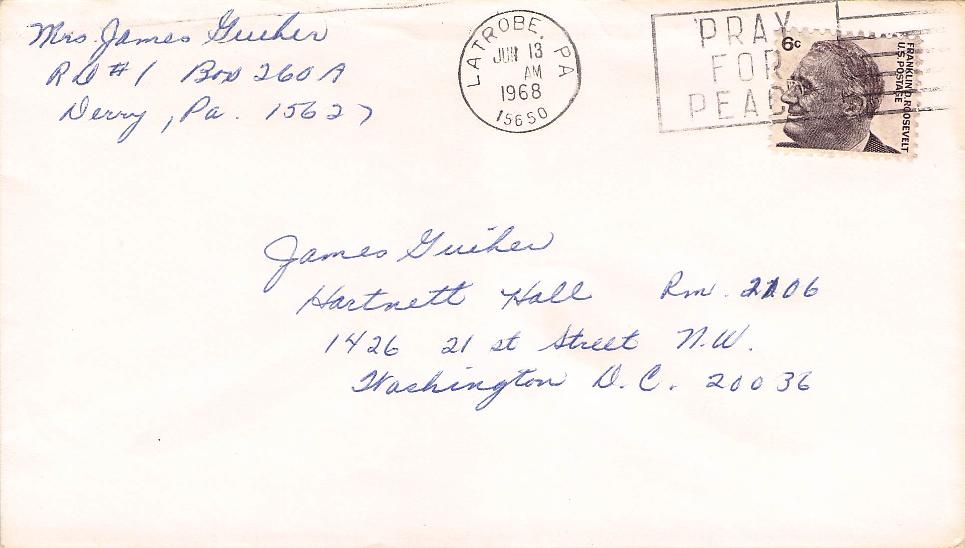 Mrs. James Guiher
RD #1 Box 260A
Derry, Pa. 15627
LATROBE, PA
JUN 13
AM
1968
15650
PRAY
FOR
PEACE
6c
FRANKLIN D. ROOSEVELT
U.S. POSTAGE
James Guiher
Hartnett Hall Rm. 2106
1426 21 st Street N.W.
Washington D.C. 20036